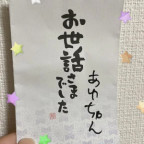 お世話
さまでした
あゆちゃん